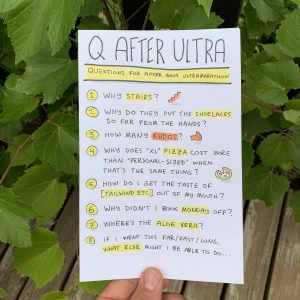 Q AFTER ULTRA
QUESTIONS FOR AFTER YOUR ULTRAMARATHON
1 WHY STAIRS?
2 WHY DO THEY PUT THE SHOELACES
SO FAR FROM THE HANDS?
3 HOW MANY KUDOS?
4 WHY DOES "XL" PIZZA COST MORE
THAN "PERSONAL-SIZED" WHEN
THAT'S THE SAME THING?
5 HOW DO I GET THE TASTE OF
[TAILWIND ETC] OUT OF MY MOUTH?
6 WHY DIDN'T I BOOK MONDAY OFF?
7 WHERE'S THE ALOE VERA?
8 IF I WENT THIS FAR/FAST/LONG,
WHAT ELSE MIGHT I BE ABLE TO DO...